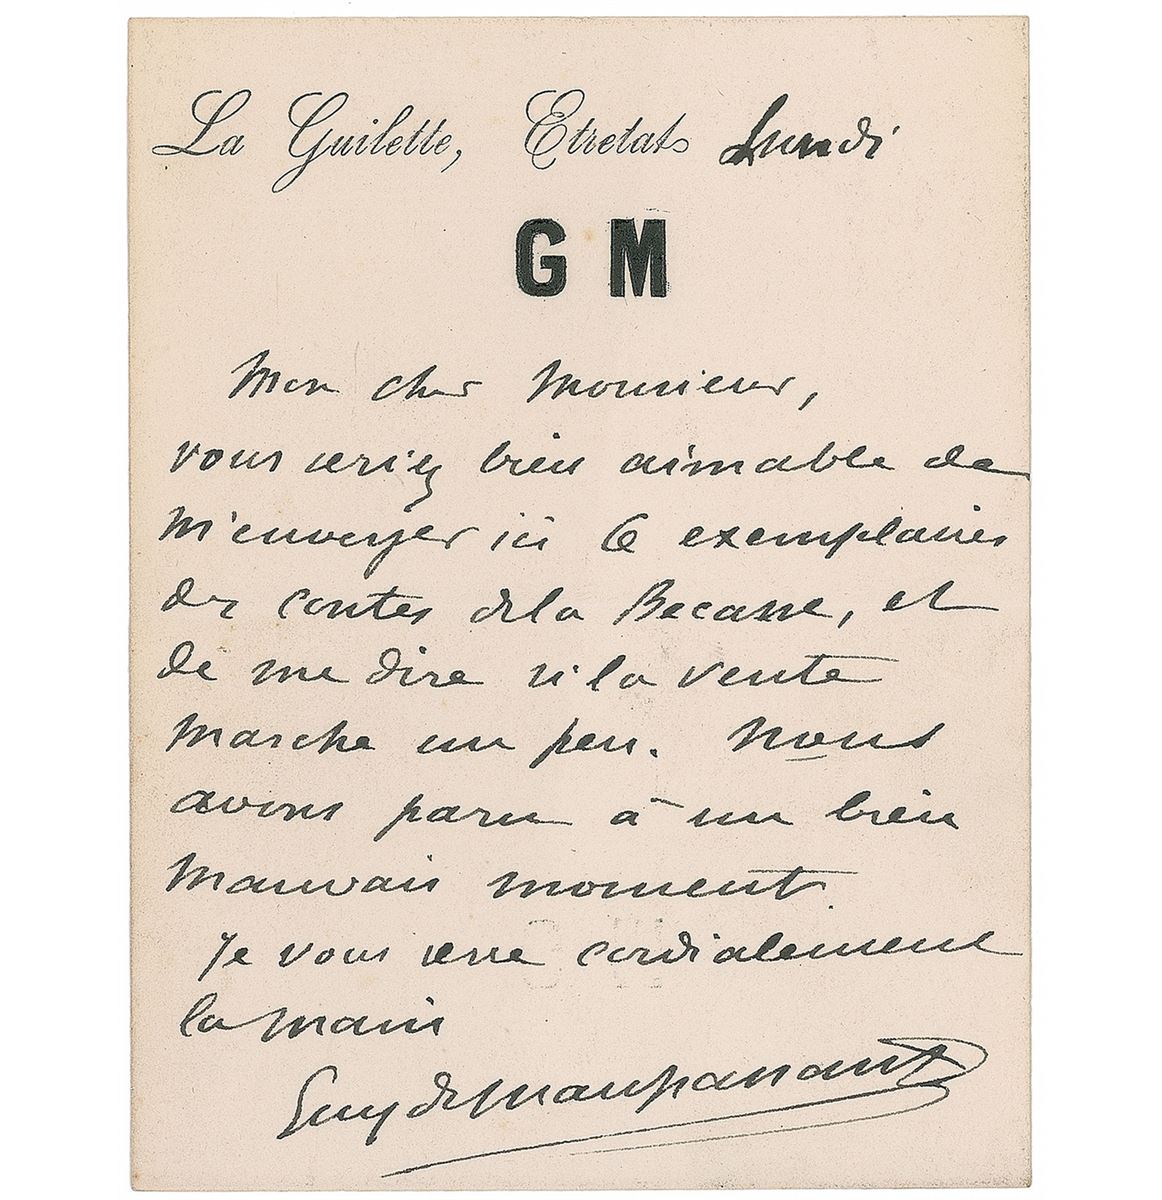 La Guillette, Etretat Lundi
G M
Mon cher Monsieur,
vous seriez bien aimable de
m'envoyer ici 6 exemplaires
des contes de la Becasse, et
de me dire si la vente
marche un peu. Nous
avons paru à un bien
mauvais moment.
Je vous serre cordialement
la main
Guy de Maupassant